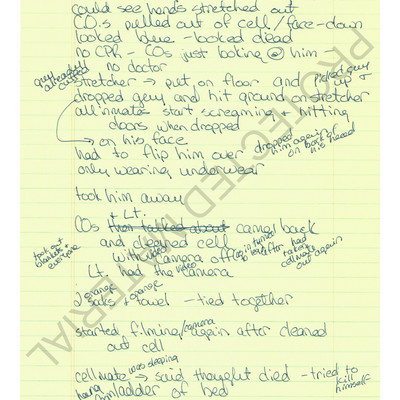 could see hands stretched out
CO.s pulled out of cell/face-down
looked blue - looked dead
no CPR - COs just looking @ him →
no doctor
guy already all cuffed
stretcher → put on floor and picked guy up +
dropped guy and hit ground on stretcher
all inmates start screaming + hitting
doors when dropped
→ on his face
had to flip him over dropped again him on back of his head
only wearing underwear
took him away
+ Lt.
COs then talked about came back
and cleaned cell
with video camera off
Lt. had the video camera
took out blankets + everyone
again turned after had
out again
2 orange soaks + orange towel - tied together
started filming/camera again after cleaned
out cell
cellmate → was sleeping said thought died - tried to kill himself
hang from ladder of bed
PROTECTED MATERIAL